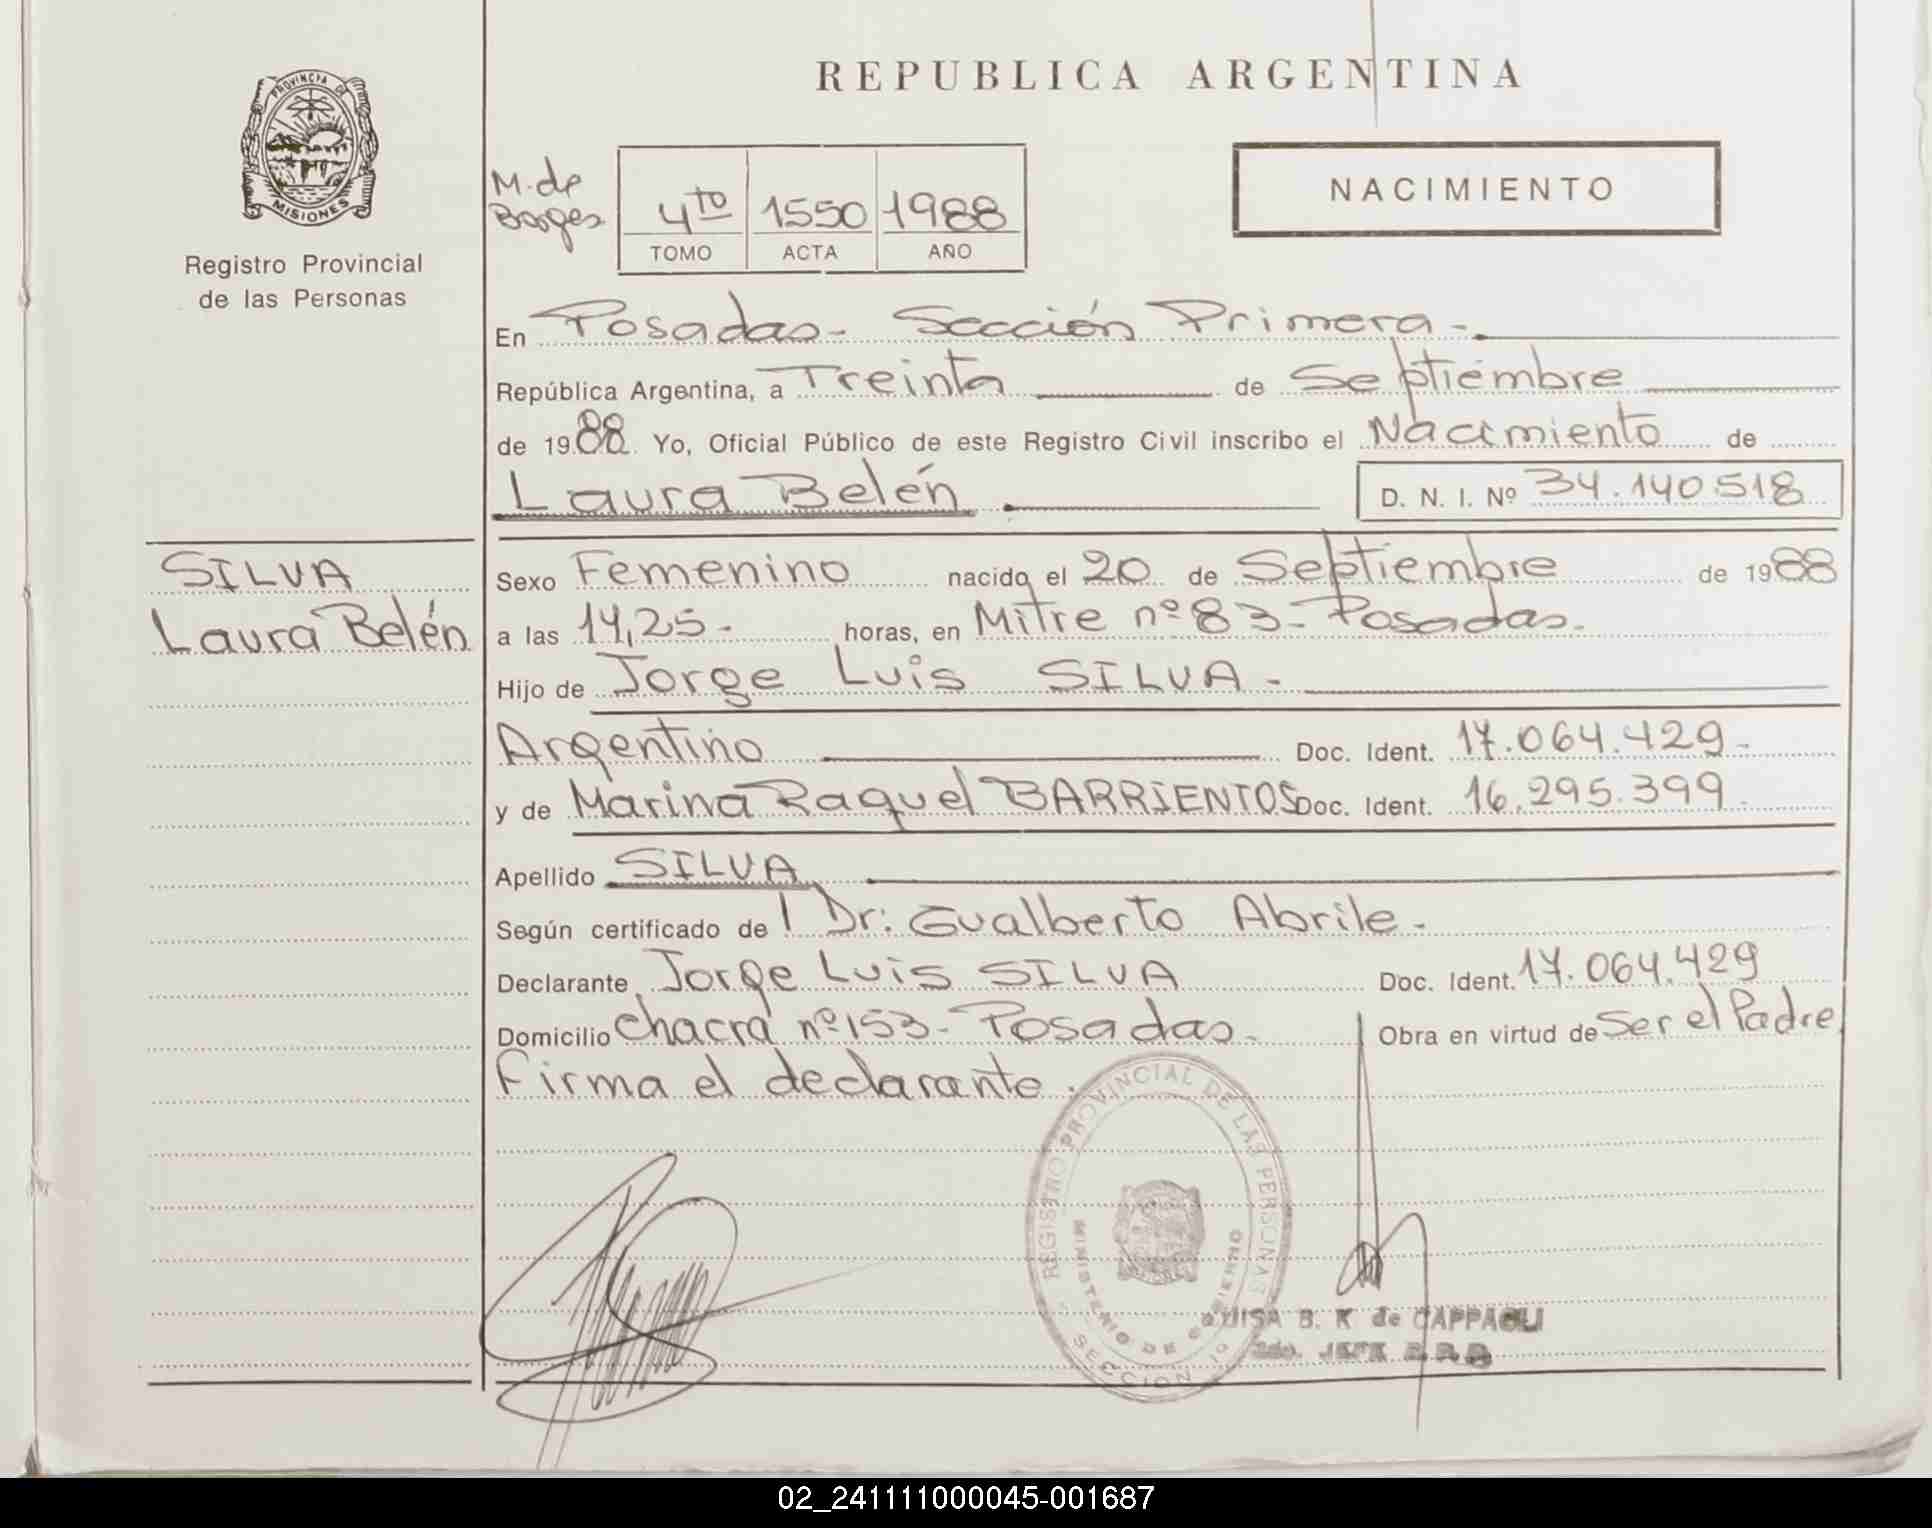 REPUBLICA ARGENTINA
PROVINCIA DE
MISIONES
Registro Provincial
de las Personas
M. de
Borges
4to 1550 1988
TOMO ACTA AÑO
NACIMIENTO
En Posadas - Sección Primera -
República Argentina, a Treinta de Septiembre
de 1988. Yo, Oficial Público de este Registro Civil inscribo el Nacimiento de
Laura Belén D. N. I. Nº 34.140.518
SILVA
Laura Belén
Sexo Femenino nacido el 20 de Septiembre de 1988
a las 14,25- horas, en Mitre nº 83- Posadas.
Hijo de Jorge Luis SILVA -
Argentino Doc. Ident. 17.064.429-
y de Marina Raquel BARRIENTOS Doc. Ident. 16.295.399
Apellido SILVA
Según certificado de l Dr: Gualberto Abrile.
Declarante Jorge Luis SILVA Doc. Ident. 17.064.429
Domicilio chacra nº 153- Posadas. Obra en virtud de Ser el Padre
Firma el declarante.
REGISTRO PROVINCIAL DE LAS PERSONAS
MINISTERIO DE GOBIERNO
SECCION 1º
LUISA B. K de CAPPAGLI
2do. JEFE
02_241111000045-001687